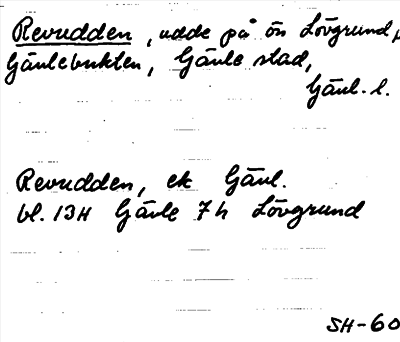 Revudden, udde på ön Lövgrund,
Gävlebukten, Gävle stad,
Gävl. l.
Revudden, ek Gävl.
bl. 13H Gävle 7h Lövgrund
SH-60